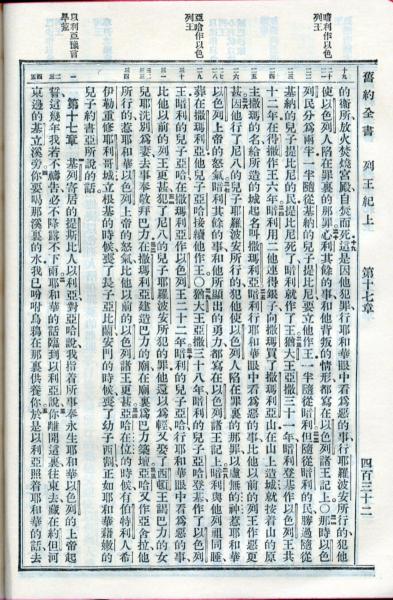 舊約全書　列王紀上　第十七章　四百三十二
暗利作以色列王
亞哈作以色列王
以利亞豫言旱荒
的衞所放火焚燒宮殿自焚而死這是因他犯罪行耶和華眼中看爲惡的事行耶羅波安所行的犯他
使以色列人陷在罪裏的那罪心利其餘的事和他背叛的情形都寫在以色列諸王記上〇那時以色
列民分爲兩半一半隨從基納的兒子提比尼要立他作王一半隨從暗利但隨從暗利的民勝過隨從
基納的兒子提比尼的民提比尼死了暗利就作了王猶大王亞撒三十一年暗利登基作以色列王共
十二年在得撒作王六年暗利用二他連得銀子向撒瑪買了撒瑪利亞山在山上造城就按着山的原
主撒瑪的名給所造的城起名叫撒瑪利亞暗利行耶和華眼中看爲惡的事比他以前的列王作惡更
甚因他行了尼八的兒子耶羅波安所行的犯他使以色列人陷在罪裏的那罪以虛無的神惹耶和華
以色列上帝的怒氣暗利其餘的事和他所顯出的勇力都寫在以色列諸王記上暗利與他列祖同睡
葬在撒瑪利亞他兒子亞哈接續他作王〇猶大王亞撒三十八年暗利的兒子亞哈登基作了以色列
王暗利的兒子亞哈在撒瑪利亞作以色列王二十二年暗利的兒子亞哈行耶和華眼中看爲惡的事
比他以前的列王更甚犯了尼八的兒子耶羅波安所犯的罪他還以爲輕又娶了西頓王謁巴力的女
兒耶洗別爲妻去事奉敬拜巴力在撒瑪利亞建造巴力的廟在廟裏爲巴力築壇亞哈又作亞舍拉他
所行的惹耶和華以色列上帝的怒氣比他以前的以色列諸王更甚亞哈在位的時候有伯特利人希
伊勒重修耶利哥城立根基的時候喪了長子亞比蘭安門的時候喪了幼子西割正如耶和華藉嫩的
兒子約書亞所說的話
第十七章　基列寄居的提斯比人以利亞對亞哈說我指着所事奉永生耶和華以色列的上帝起
誓這幾年我若不禱告必不降露不下雨耶和華的話臨到以利亞說你離開這裏往東去藏在約但河
東邊的基立溪旁你要喝那溪裏的水我已吩咐烏鴉在那裏供養你於是以利亞照着耶和華的話去